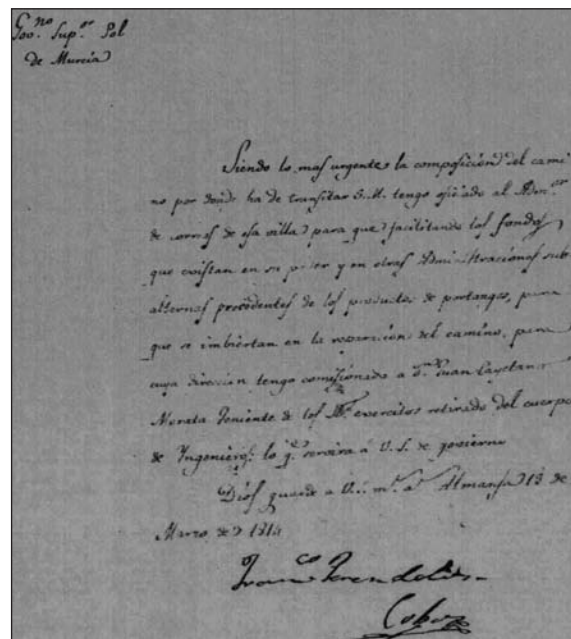 Gov.no Sup.or Pol
de Murcia
Siendo lo mas urgente la composicion del cami
no por donde ha de transitar S.M. tengo oficiado al Adm.or
de correos de esa villa para que facilitando los fondos
que existan en su poder y en otras Administraciones sub
alternas procedentes de los productos de portazgos, para
que se imbiertan en la reparacion del camino, para
cuya direccion tengo comisionado a D.n Juan Cayetano
Morata Teniente de los R.s exercitos retirado del cuerpo
de Ingenieros: lo q.e servira á V.S. de govierno
Dios guarde a V.S. m.s a.s Almansa 13 de
Marzo de 1814
Fran.co
Cobo